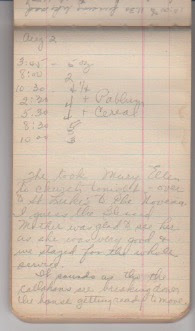 Aug 2
3:45 - 5 oz
8:00 2
10.30 4 1/4
2:30 4 + Pablum
5.30 4 + Cereal
8:30 5
10 3
She took Mary Ellen
to church over
to St the Novena
I guess the
Mother was glad to see her
as she was very good &
we stayed for the whole
service.
It sounds as tho the
Callahans are breaking down
the house getting ready to move